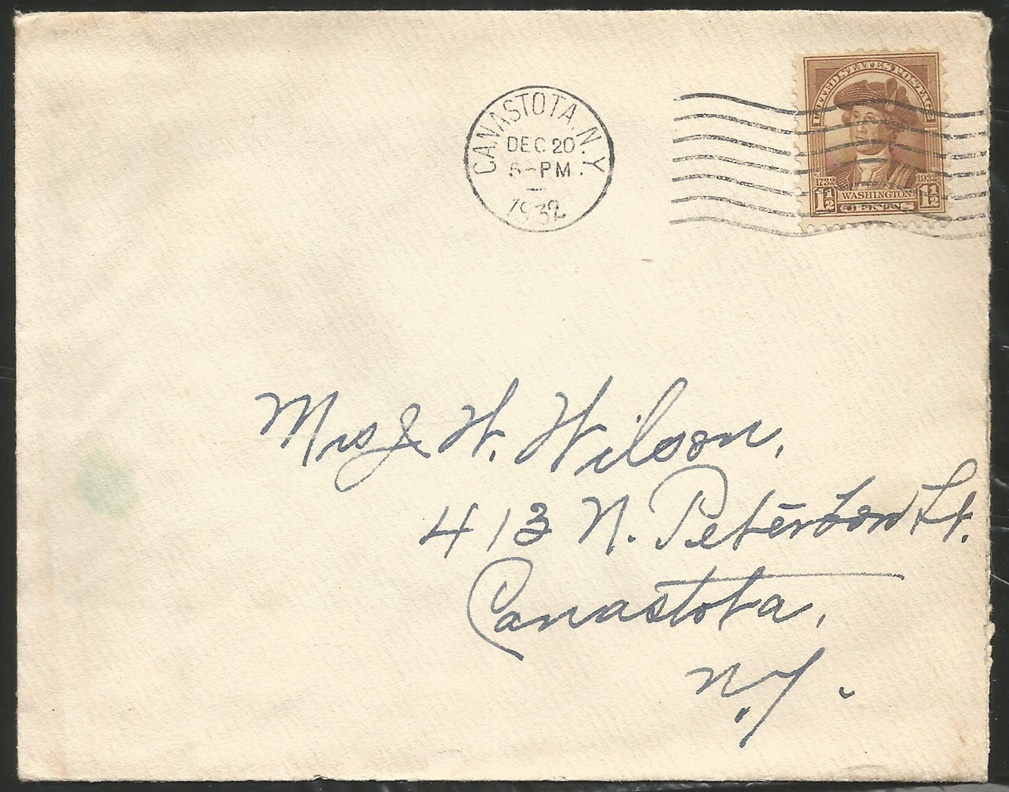 CANASTOTA, N.Y.
DEC 20
5-PM
1932
UNITED STATES POSTAGE
1732 1932
WASHINGTON
1½ 1½
Mrs J. W. Wilson,
413 N. Peterboro St.
Canastota,
N.Y.